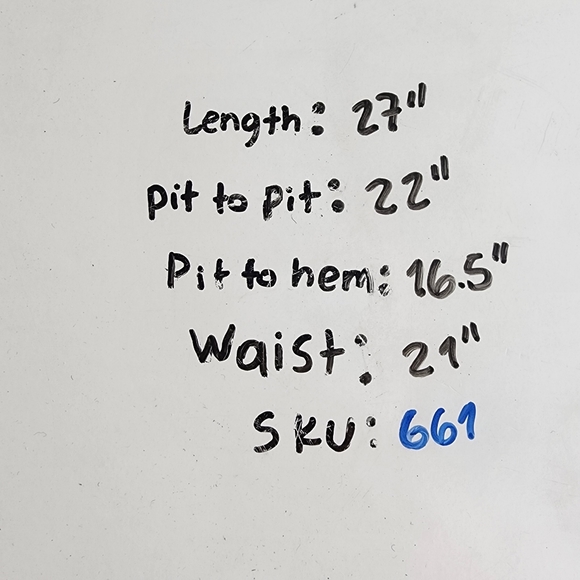 Length: 27"
pit to pit: 22"
Pit to hem: 16.5"
Waist: 21"
SKU: 661